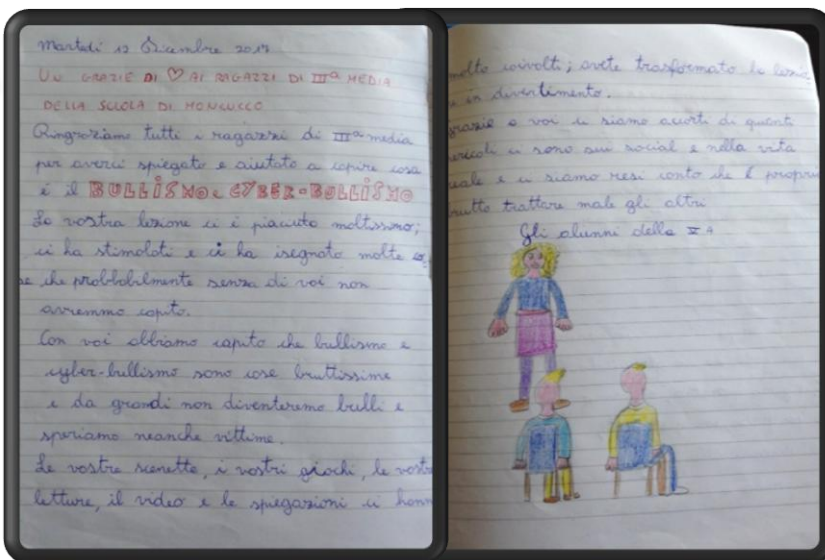 Martedì 12 Dicembre 2017
UN GRAZIE DI ♡ AI RAGAZZI DI IIIª MEDIA
DELLA SCUOLA DI MONCUCCO
Ringraziamo tutti i ragazzi di IIIª media
per averci spiegato e aiutato a capire cosa
è il BULLISMO e CYBER-BULLISMO
La vostra lezione ci è piaciuta moltissimo;
ci ha stimolati e ci ha isegnato molte co
se che probbabilmente senza di voi non
avremmo capito.
Con voi abbiamo capito che bullismo e
cyber-bullismo sono cose bruttissime
e da grandi non diventeremo bulli e
speriamo neanche vittime.
Le vostre scenette, i vostri giochi, le vostre
letture, il video e le spiegazioni ci hanno
molto coivolti; avete trasformato la lezio
e in divertimento.
grazie a voi ci siamo acorti di quanti
pericoli ci sono sui social e nella vita
reale e ci siamo resi conto che è proprio
brutto trattare male gli altri
Gli alunni della V A